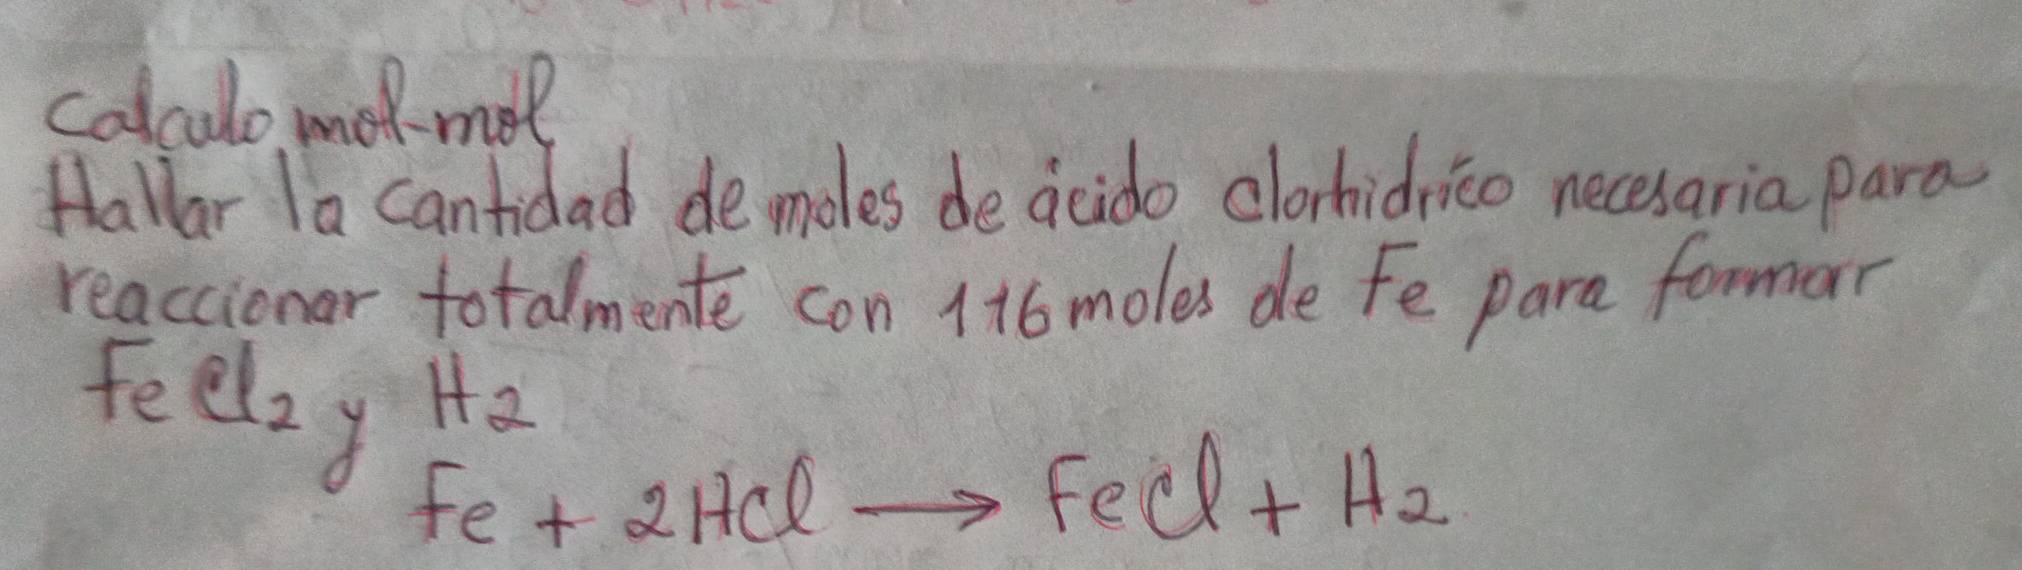 calculo mol-mol
Hallar la cantidad de moles de ácido clorhidríco necesaria para
reaccionar totalmente con 116 moles de Fe para formar
FeCl₂ y H₂
Fe + 2HCl → FeCl + H₂